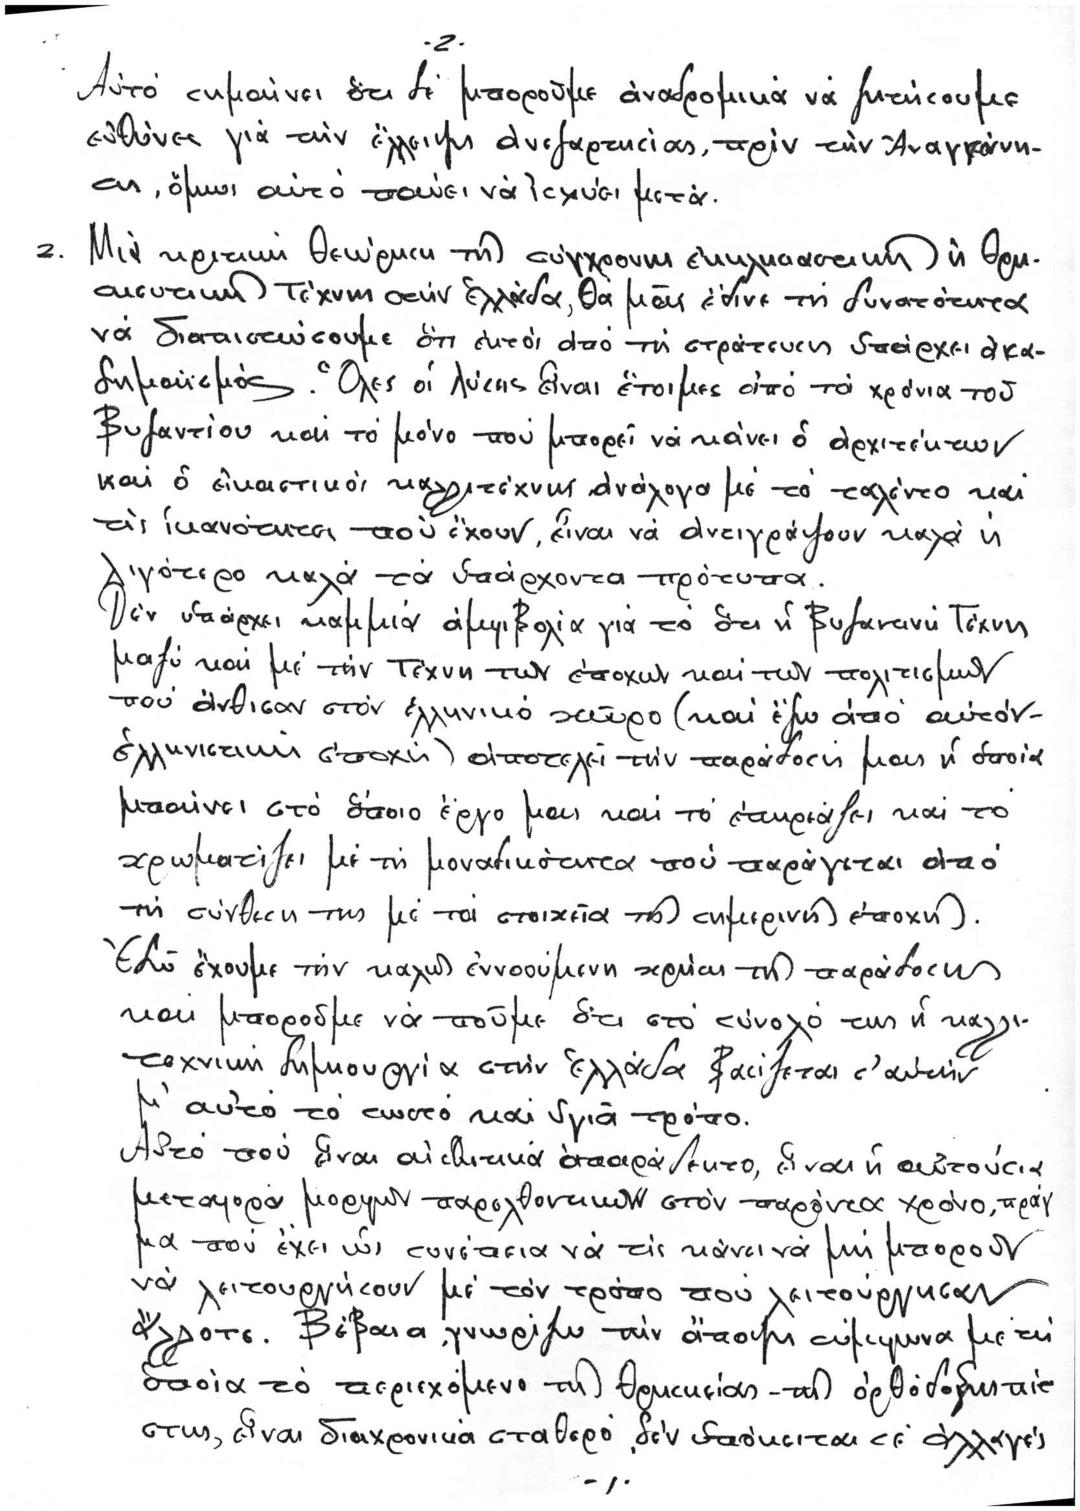 .2.
Αὐτό σημαίνει ὅτι δέ μποροῦμε ἀναδρομικά νά ζητήσουμε
εὐθύνες γιά τήν ἔλλειψη ἀνεξαρτησίας, πρίν τήν Ἀναγέννη-
ση, ὅμως αὐτό παύει νά ἰσχύει μετά.
2. Μιά κριτική θεώρηση τῆς σύγχρονης ἐκκλησιαστικῆς ἤ θρη-
σκευτικῆς Τέχνης στήν Ἑλλάδα, θά μᾶς ἔδινε τή δυνατότητα
νά διαπιστώσουμε ὅτι ἐκτός ἀπό τή στράτευση ὑπάρχει ἀκα-
δημαϊσμός. Ὅλες οἱ λύσεις εἶναι ἕτοιμες ἀπό τά χρόνια τοῦ
Βυζαντίου καί τό μόνο πού μπορεῖ νά κάνει ὁ ἀρχιτέκτων
καί ὁ εἰκαστικός καλλιτέχνης ἀνάλογα μέ τό ταλέντο καί
τίς ἱκανότητες πού ἔχουν, εἶναι νά ἀντιγράψουν καλά ἤ
λιγότερο καλά τά ὑπάρχοντα πρότυπα.
Δέν ὑπάρχει καμμιά ἀμφιβολία γιά τό ὅτι ἡ Βυζαντινή Τέχνη
μαζύ καί μέ τήν Τέχνη τῶν ἐποχῶν καί τῶν πολιτισμῶν
πού ἄνθισαν στόν ἑλληνικό χῶρο (καί ἔξω ἀπό αὐτόν-
ἑλληνιστική ἐποχή) ἀποτελεῖ τήν παράδοσή μας ἡ ὁποία
μπαίνει στό ὅποιο ἔργο μας καί τό ἐπηρεάζει καί τό
χρωματίζει μέ τή μοναδικότητα πού παράγεται ἀπό
τή σύνθεση της μέ τά στοιχεῖα τῆς σημερινῆς ἐποχῆς.
Ἐδῶ ἔχουμε τήν καλῶς ἐννοούμενη χρήση τῆς παράδοσης
καί μποροῦμε νά ποῦμε ὅτι στό σύνολό της ἡ καλλι-
τεχνική δημιουργία στήν Ἑλλάδα βασίζεται σ' αὐτήν
μ' αὐτό τό σωστό καί ὑγιᾶ τρόπο.
Αὐτό πού εἶναι αἰσθητικά ἀπαράδεκτο, εἶναι ἡ αὐτούσια
μεταφορά μορφῶν παρελθοντικῶν στόν παρόντα χρόνο, πράγ
μα πού ἔχει ὡς συνέπεια νά τίς κάνει νά μή μποροῦν
νά λειτουργήσουν μέ τόν τρόπο πού λειτούργησαν
ἄλλοτε. Βέβαια, γνωρίζω τήν ἄποψη σύμφωνα μέ τή
ὁποία τό περιεχόμενο τῆς θρησκείας - τῆς ὀρθόδοξης πίσ
στης, εἶναι διαχρονικά σταθερό, δέν ὑπόκειται σέ ἀλλαγές
-1.